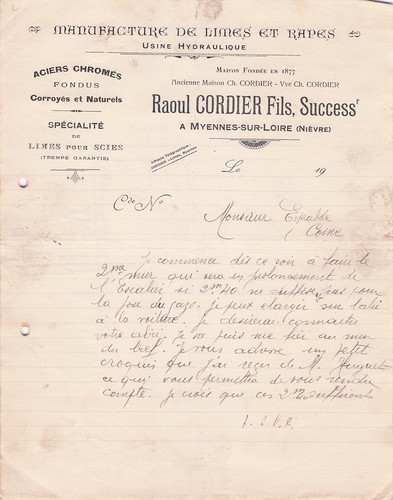 MANUFACTURE DE LIMES ET RAPES
USINE HYDRAULIQUE
ACIERS CHROMÉS
FONDUS
Corroyés et Naturels
SPÉCIALITÉ
DE
LIMES POUR SCIES
(TREMPE GARANTIE)
MAISON FONDÉE EN 1877
Ancienne Maison Ch. CORDIER - Vve Ch. CORDIER
Raoul CORDIER Fils, Success^r
A MYENNES-SUR-LOIRE (NIÈVRE)
Adresse Télégraphique :
CORDIER - Limes, Myennes
Le 19
C^de N^o
Monsieur
Cosne
Je commence dès ce soir à faire le
2me mur qui sera en prolongement de
l'Escalier si 2m40 ne suffisent pas pour
la pose du gazo. je peux élargir sur
à la voiture. je désirerai connaître
votre avis. je ne puis me fier au mur
du bief. Je vous adresse un petit
croquis que j'ai reçu de M. Huguet
ce qui vous permettra de vous rendre
compte. je crois que ces 2m40 suffiront